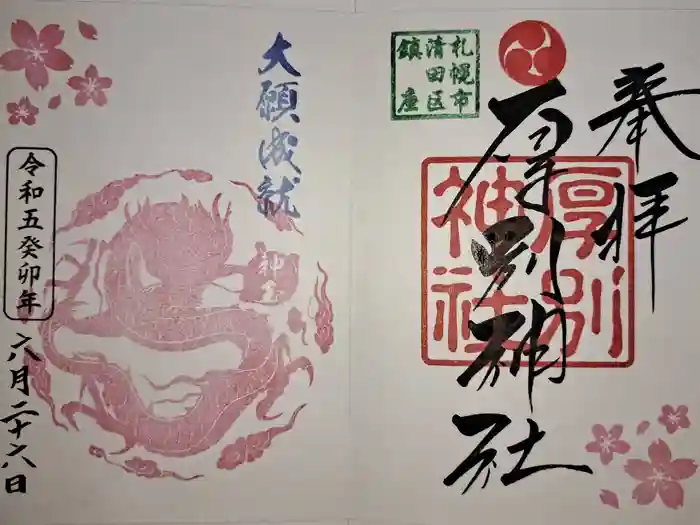 奉拝
厚別神社
札幌市
清田区
鎮座
厚別
神社
大願成就
神玉
令和五癸卯年
六月二十六日